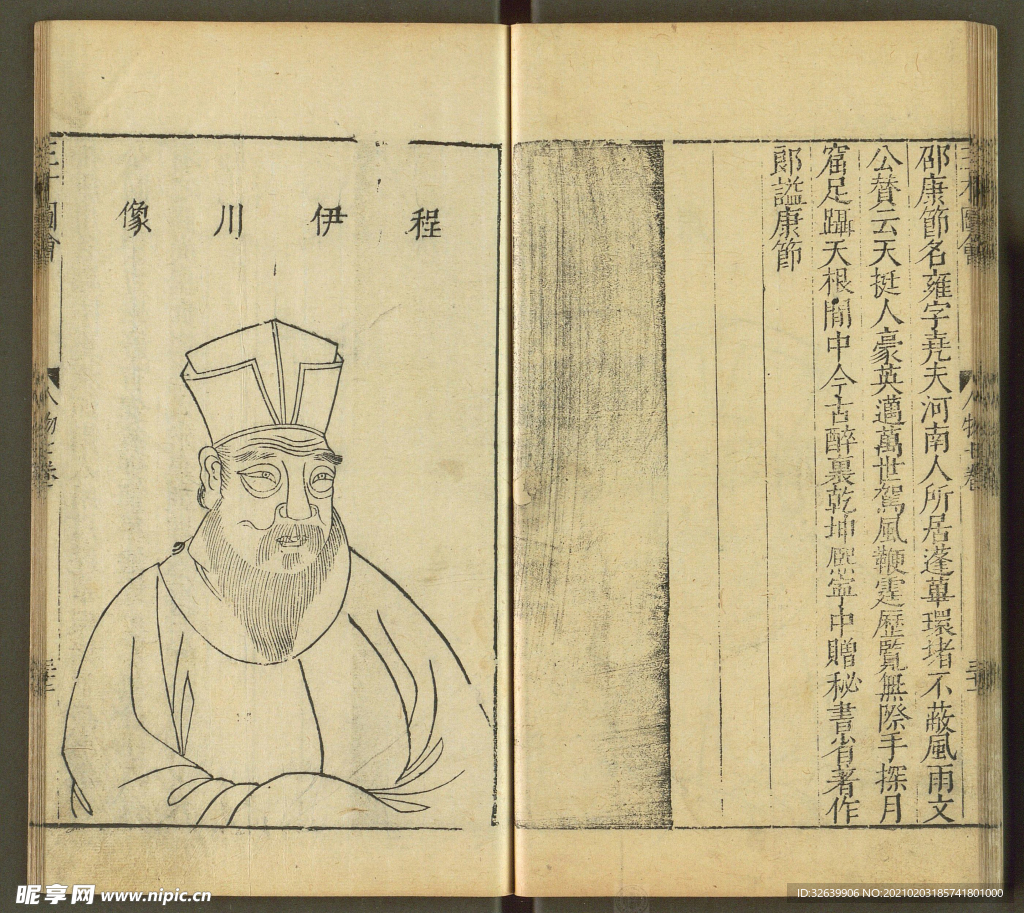 邵康節名雍字堯夫河南人所居蓬蓽環堵不蔽風雨文
公贊云天挺人豪英邁萬世駕風鞭霆歷覽無際手探月
窟足躡天根閒中今古醉裏乾坤熙寧中贈秘書省著作
郎謚康節
程伊川像
三才圖會
人物七卷
三才圖會
昵享网 www.nipic.cn
ID:32639906 NO:20210203185741801000